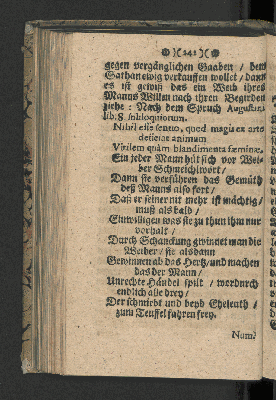 )( 242 )(
gegen vergänglichen Gaaben / dem
Sathan ewig verkauffen wollet / dann
es ist gewiß das ein Weib ihres
Manns Willen nach ihren Begirden
ziehe: Nach dem Spruch Augustin.
lib. 8 soliloquiorum.
Nihil esse sentio, quod magis ex arte
deficiat animum
Virilem quàm blandimenta fæminæ.
Ein jeder Mann hüt sich vor Wei-
ber Schmeichlwort /
Dann sie verführen das Gemüth
deß Manns also fort /
Daß er seiner nit mehr ist mächtig /
muß alsbald /
Einwilligen was sie zu thun ihm nur
vorhalt /
Durch Schandung gwinnet man die
Weiber / sie alsdann
Gewinnen ab das Hertz / und machen
das der Mann /
Unrechte Händel spilt / wordurch
endlich alle drey /
Der schmiebt und beyd Eheleuth /
zum Teuffel fahren frey.
Num?